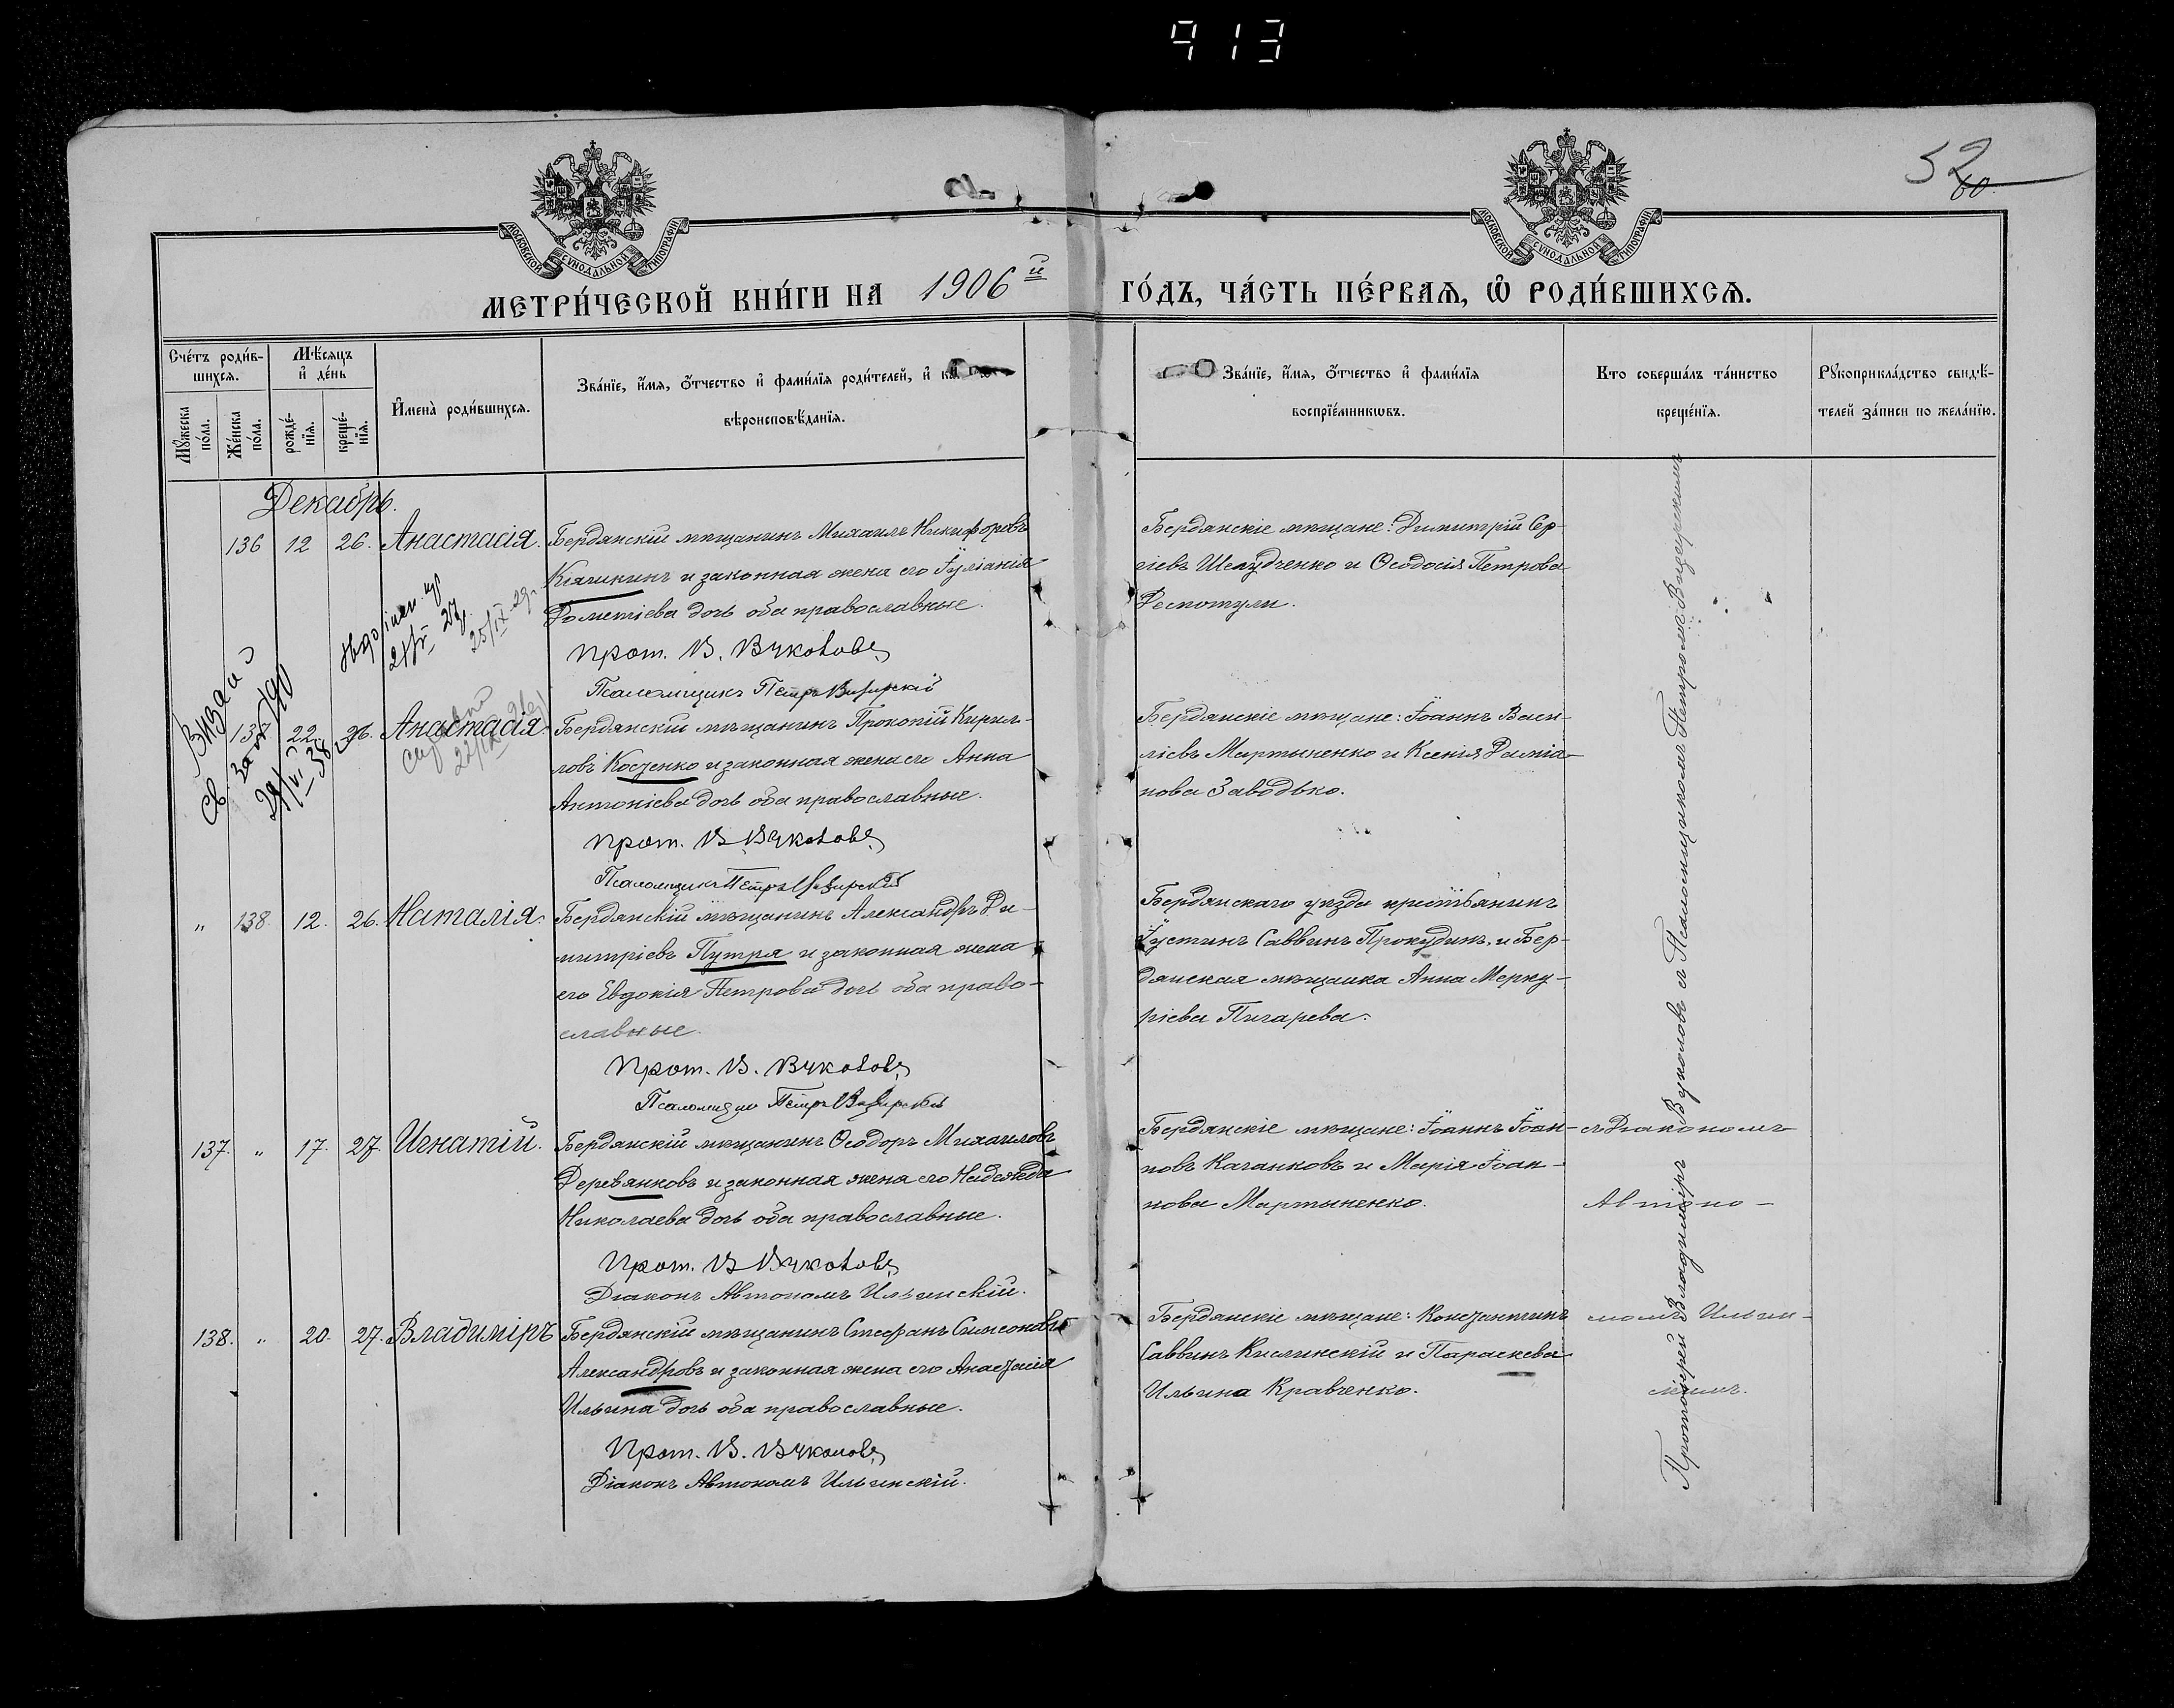 913
52
60
МОСКОВСКОЙ СѴНОДАЛЬНОЙ ТИПОГРАФІИ
МОСКОВСКОЙ СѴНОДАЛЬНОЙ ТИПОГРАФІИ
МЕТРИ́ЧЕСКОЙ КНИ́ГИ НА 1906й ГО́ДЪ, ЧА́СТЬ ПЕ́РВАѦ, Ѡ҆ РОДИ́ВШИХСѦ.
Сче́тъ роди́в-
шихсѧ.
Мꙋ́жеска по́ла.
Же́нска по́ла.
Мѣ́сѧцъ
и҆ де́нь
рожде́-
нїѧ.
креще́-
нїѧ.
И҆мена̀ роди́вшихсѧ.
Зва́нїе, и҆́мѧ, ѻ҆́тчество и҆ фами́лїѧ роди́телей, и҆
вѣроисповѣ́данїѧ.
Зва́нїе, и҆́мѧ, ѻ҆́тчество и҆ фами́лїѧ
воспрїе́мникѡвъ.
Кто соверша́лъ та́инство
креще́нїѧ.
Рꙋкоприкла́дство свидѣ́-
телей за́писи по жела́нїю.
Декабрь.
136 12 26. Анастасія. Бердянскій мѣщанинъ Михаилъ Никифоровъ
и законная жена его Іуліанія
дочь оба православные.
Прот. В. Вуколовъ
Псаломщикъ Петръ Визирскій
Бердянскіе мѣщане: Димитрій Сер-
гіевъ Шелудченко и Ѳеодосія Петрова
Деспотули.
25/IX 29г.
137 22 26. Анастасія. Бердянскій мѣщанинъ Прокопій Кирил-
ловъ Косенко и законная жена его Анна
Антоніева дочь оба православные.
Прот. В. Вуколовъ
Псаломщикъ Петръ Визирскій
Бердянскіе мѣщане: Іоаннъ Васи-
ліевъ Мартыненко и Ксенія Даміа-
нова Заводько.
" 138. 12. 26. Наталія. Бердянскій мѣщанинъ Александръ Ди-
митріевъ Путря и законная жена
его Евдокія Петрова дочь оба право-
славные.
Прот. В. Вуколовъ
Псаломщикъ Петръ Визирскій
Бердянскаго уѣзда крестьянинъ
Іустинъ Саввинъ Прокудинъ, и Бер-
дянская мѣщанка Анна Мерку-
ріева Пичарева.
137. " 17. 27. Игнатій. Бердянскій мѣщанинъ Ѳеодоръ Михаиловъ
Деревянковъ и законная жена его Надежда
Николаева дочь оба православные.
Прот. В. Вуколовъ
Діаконъ Автономъ Ильинскій.
Бердянскіе мѣщане: Іоаннъ Іоан-
новъ Качанковъ и Марія Іоан-
нова Мартыненко.
138. " 20. 27. Владиміръ Бердянскій мѣщанинъ Стефанъ Симеоновъ
Александровъ и законная жена его Анастасія
Ильина дочь оба православные.
Прот. В. Вуколовъ
Діаконъ Автономъ Ильинскій.
Бердянскіе мѣщане: Константинъ
Саввинъ Кислинскій и Параскева
Ильина Кравченко.
Протоіерей Владиміръ Вуколовъ съ Псаломщикомъ Петромъ Визирскимъ
съ Діакономъ
Автоно-
момъ Ильин-
скимъ.